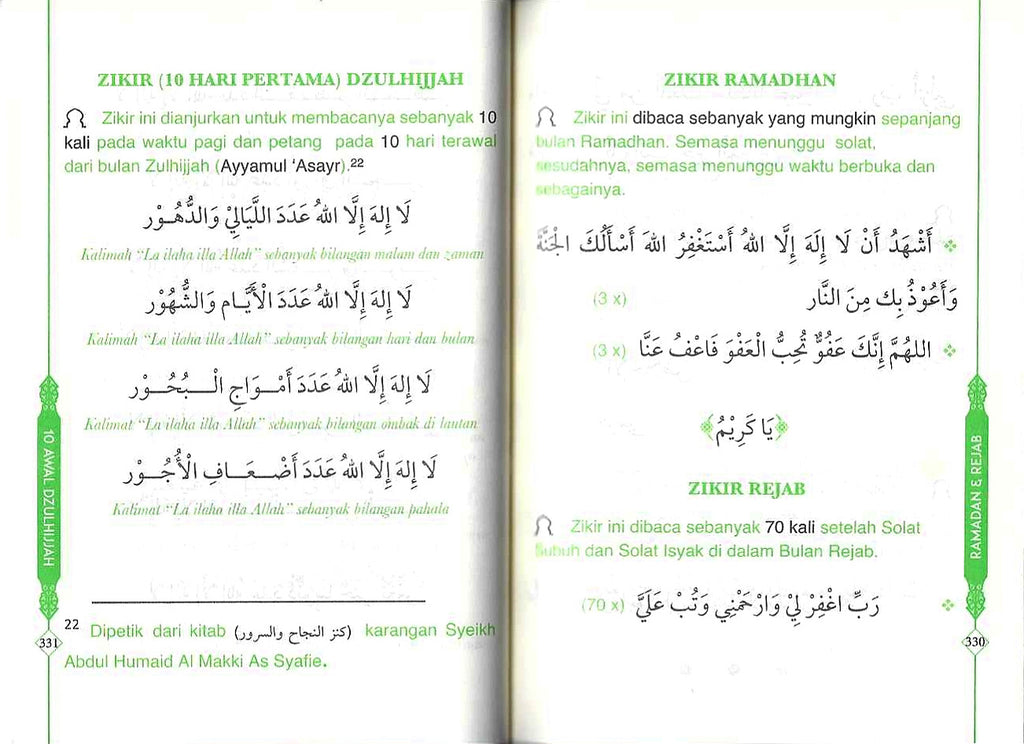 ZIKIR RAMADHAN
Zikir ini dibaca sebanyak yang mungkin sepanjang
bulan Ramadhan. Semasa menunggu solat,
sesudahnya, semasa menunggu waktu berbuka dan
sebagainya.
أَشْهَدُ أَنْ لَا إِلَهَ إِلَّا اللهُ أَسْتَغْفِرُ اللهَ أَسْأَلُكَ الْجَنَّةَ
وَأَعُوْذُ بِكَ مِنَ النَّار (3 x)
اللهُمَّ إِنَّكَ عَفُوٌّ تُحِبُّ الْعَفْوَ فَاعْفُ عَنَّا (3 x)
﴿يَا كَرِيْمُ﴾
ZIKIR REJAB
Zikir ini dibaca sebanyak 70 kali setelah Solat
Subuh dan Solat Isyak di dalam Bulan Rejab.
رَبِّ اغْفِرْ لِيْ وَارْحَمْنِي وَتُبْ عَلَيَّ (70 x)
RAMADAN & REJAB
330
ZIKIR (10 HARI PERTAMA) DZULHIJJAH
Zikir ini dianjurkan untuk membacanya sebanyak 10
kali pada waktu pagi dan petang pada 10 hari terawal
dari bulan Zulhijjah (Ayyamul ‘Asayr).22
لَا إِلهَ إِلَّا اللهُ عَدَدَ اللَّيَالِيْ وَالدُّهُـوْر
Kalimah "La ilaha illa Allah" sebanyak bilangan malam dan zaman
لَا إِلهَ إِلَّا اللهُ عَدَدَ الْأَيَّـام وَالشُّهُوْر
Kalimah "La ilaha illa Allah" sebanyak bilangan hari dan bulan
لَا إِلهَ إِلَّا اللهُ عَدَدَ أَمْـوَاجِ الْـبُـحُـوْر
Kalimat "La ilaha illa Allah" sebanyak bilangan ombak di lautan
لَا إِلهَ إِلَّا اللهُ عَدَدَ أَضْـعَـافِ الْأُجُـوْر
Kalimat "La ilaha illa Allah" sebanyak bilangan pahala
22 Dipetik dari kitab (كنز النجاح والسرور) karangan Syeikh
Abdul Humaid Al Makki As Syafie.
10 AWAL DZULHIJJAH
331